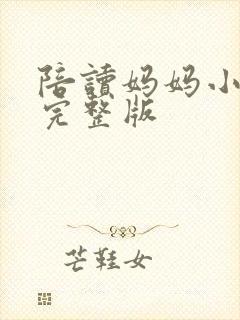 陪讀妈妈小
完整版
芒鞋女